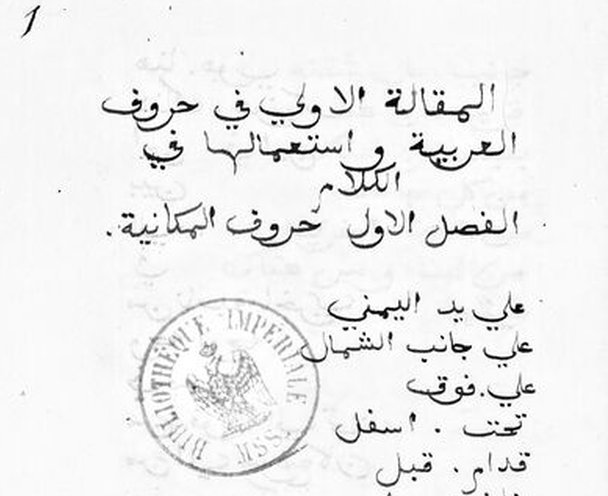 1
المقالة الاولي في حروف
العربية و استعمالها في
الكلام
الفصل الاول حروف المكانية.
علي يد اليمني
علي جانب الشمال
علي.فوق
تحت . اسفل
قدام. قبل
BIBLIOTHEQUE IMPERIALE
MSS.